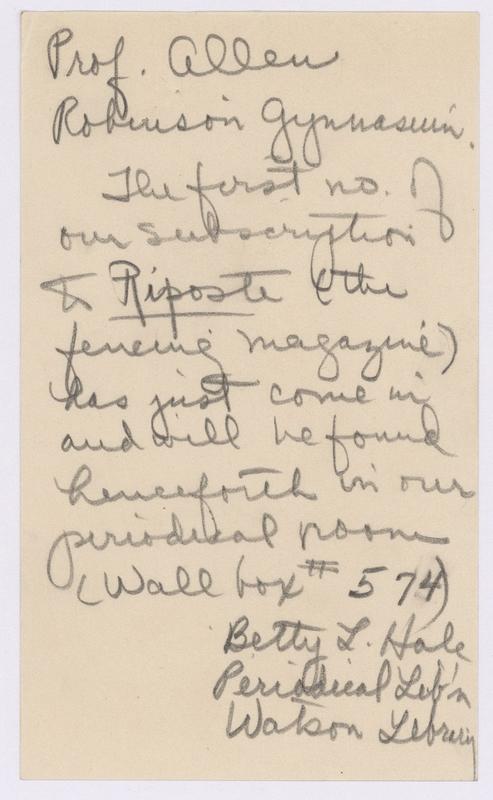 Prof. Allen
Robinson Gymnasium.
The first no. of
our subscription
to Riposte (the
fencing magazine)
has just come in
and will be found
henceforth in our
periodical room
(Wall box # 574)
Betty L. Hale
Periodical Lib'n
Watson Library